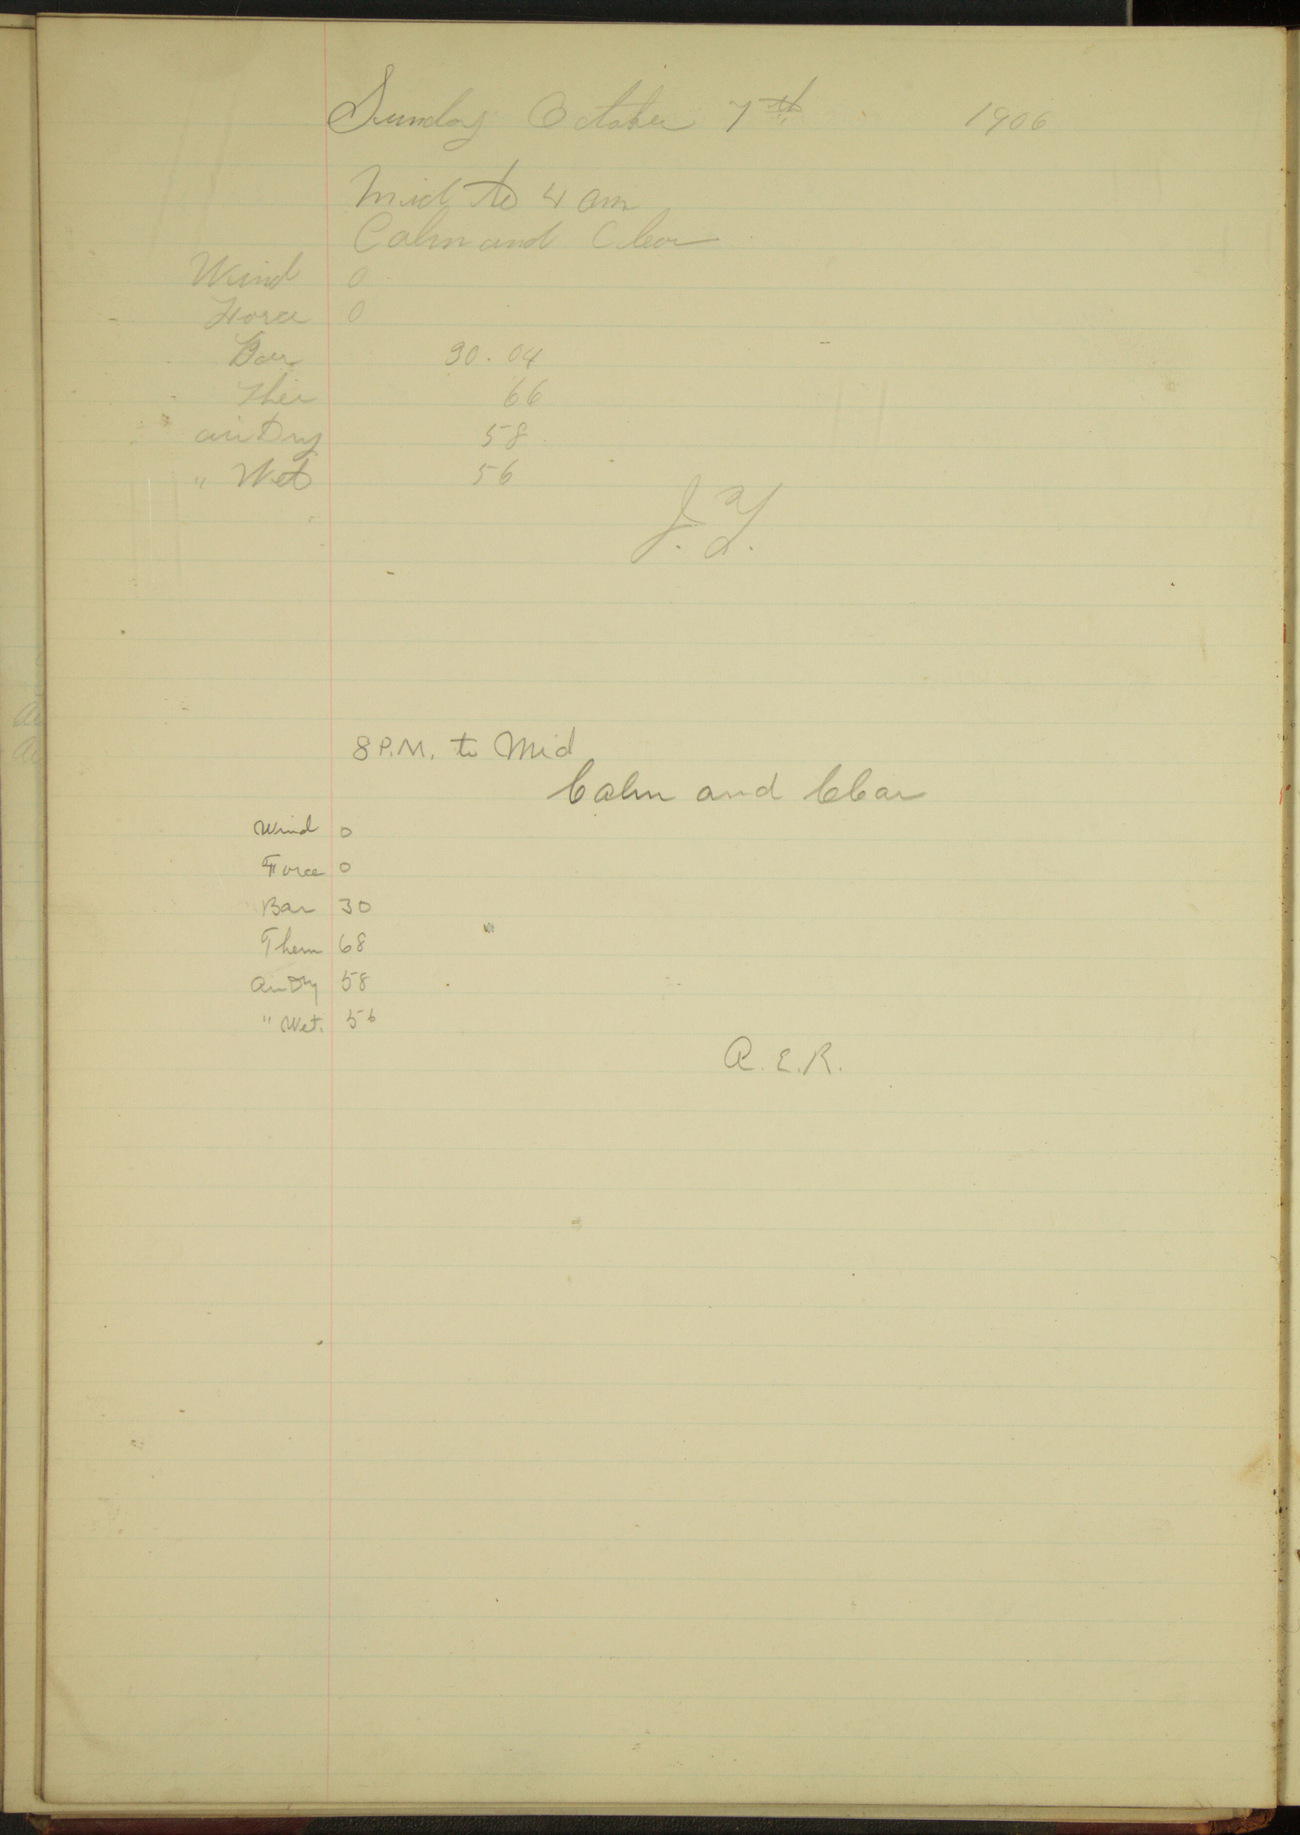 Sunday October 7th 1906
Mid to 4 am
Calm and Clear
Wind 0
Force 0
Bar 30.04
Ther 66
air Dry 58
" Wet 56
J. Y.
8 P.M. to Mid
Calm and Clear
Wind 0
Force 0
Bar 30
Therm 68
air Dry 58
" Wet. 56
A. E. R.